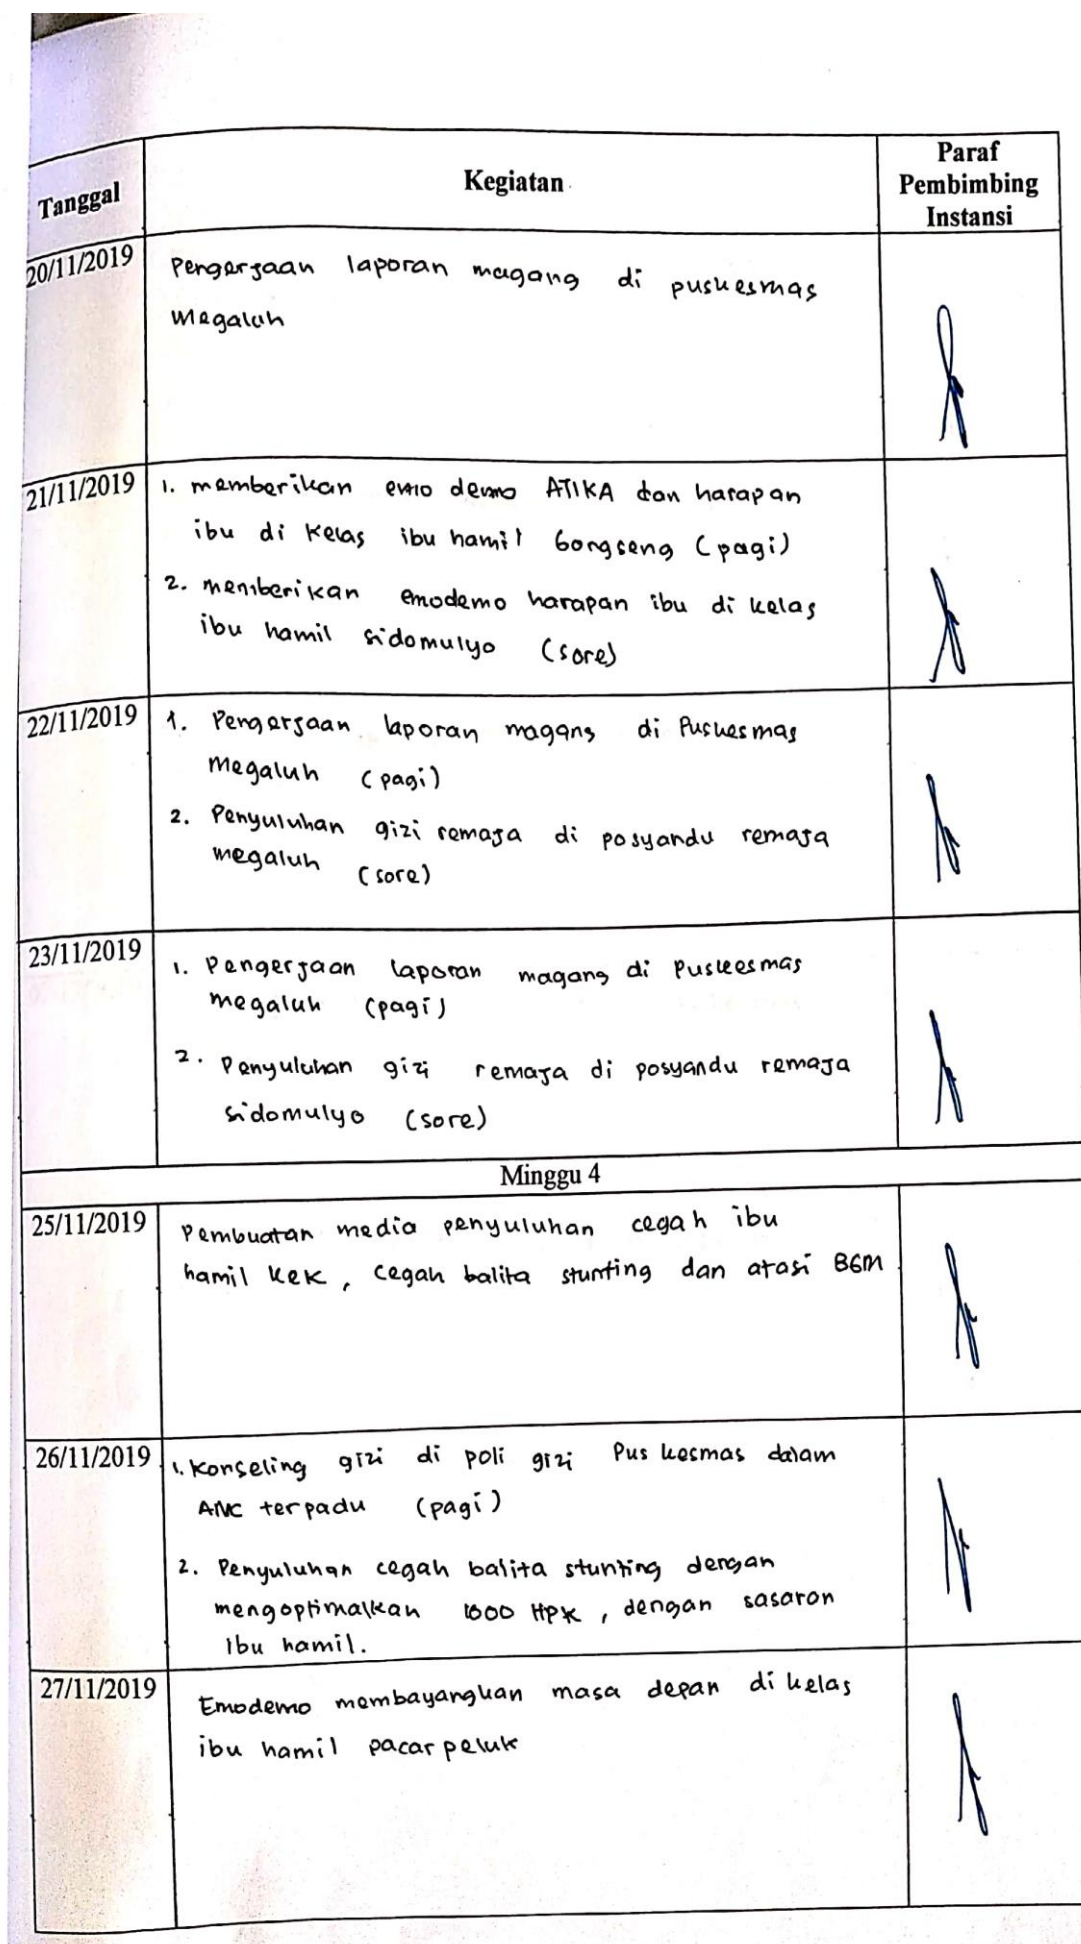 Tanggal
Kegiatan
Paraf
Pembimbing
Instansi
20/11/2019
Pengerjaan laporan magang di puskesmas
Megaluh
21/11/2019
1. memberikan emo demo ATIKA dan harapan
ibu di Kelas ibu hamil Gongseng (pagi)
2. memberikan emodemo harapan ibu di kelas
ibu hamil sidomulyo (sore)
22/11/2019
1. Pengerjaan laporan magang di Puskesmas
Megaluh (pagi)
2. Penyuluhan gizi remaja di posyandu remaja
megaluh (sore)
23/11/2019
1. Pengerjaan laporan magang di Puskesmas
megaluh (pagi)
2. Penyuluhan gizi remaja di posyandu remaja
sidomulyo (sore)
Minggu 4
25/11/2019
Pembuatan media penyuluhan cegah ibu
hamil KEK, cegah balita stunting dan atasi BGM
26/11/2019
1. Konseling gizi di poli gizi Puskesmas dalam
ANC terpadu (pagi)
2. Penyuluhan cegah balita stunting dengan
mengoptimalkan 1000 HPK, dengan sasaran
Ibu hamil.
27/11/2019
Emodemo membayangkan masa depan di kelas
ibu hamil pacarpeluk